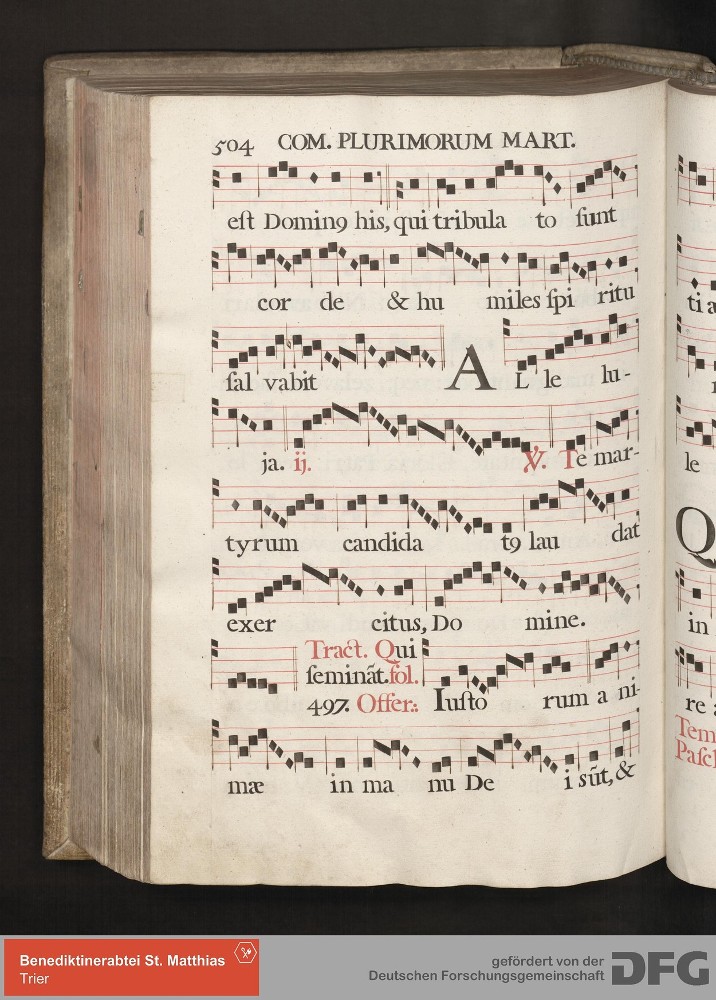 504 COM. PLURIMORUM MART.
eſt Domin9 his, qui tribula to ſunt
cor de & hu miles ſpi ritu
ſal vabit AL le lu-
ja. ij. ℣. Te mar-
tyrum candida t9 lau dat
exer citus, Do mine.
Tract. Qui
ſeminãt. fol.
497. Offer.: Iuſto rum a ni-
mæ in ma nu De i sũt, &
ti a
le
Q
in
re a
Tem
Paſch
Benediktinerabtei St. Matthias
Trier
gefördert von der
Deutschen Forschungsgemeinschaft
DFG